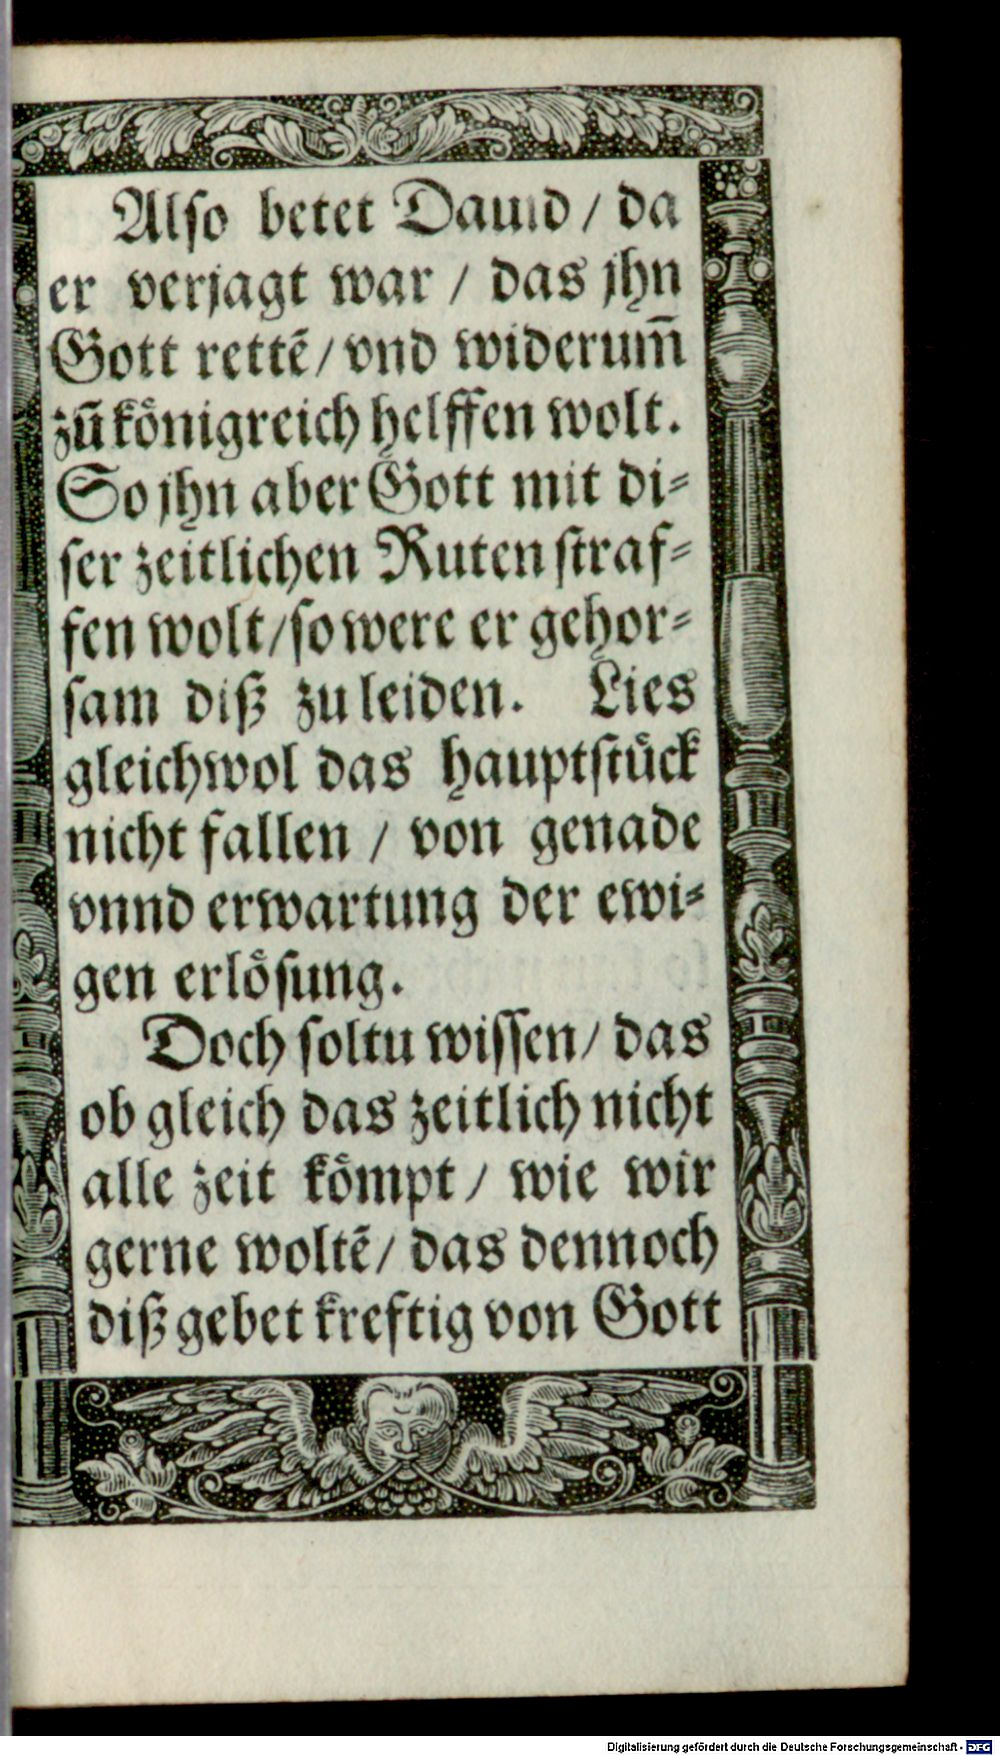 Also betet Dauid / da
er verjagt war / das jhn
Gott rettē / vnd widerum̄
zū königreich helffen wolt.
So jhn aber Gott mit di⸗
ser zeitlichen Ruten straf⸗
fen wolt / so were er gehor⸗
sam diß zu leiden. Lies
gleichwol das hauptstück
nicht fallen / von genade
vnnd erwartung der ewi⸗
gen erlösung.
Doch soltu wissen / das
ob gleich das zeitlich nicht
alle zeit kömpt / wie wir
gerne woltē / das dennoch
diß gebet kreftig von Gott
Digitalisierung gefördert durch die Deutsche Forschungsgemeinschaft - DFG